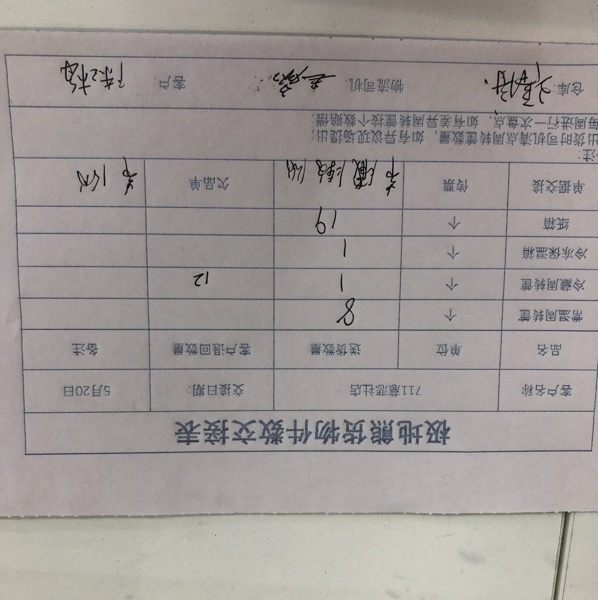 极地熊货物件数交接表
客户名称 711慈悲社店 交接日期: 5月20日
品名 单位 送货数量 客户退回数量 备注
常温周转筐 个 8
冷藏周转筐 个 1 12
冷冻保温箱 个 1
纸箱 个 19
单据交接 传票 欠品单
注:
出货时司机清点周转筐数量，如有异议现场提出;
每周进行一次盘点，如有差异周转筐按个数赔偿
仓库: 物流司机: 客户: